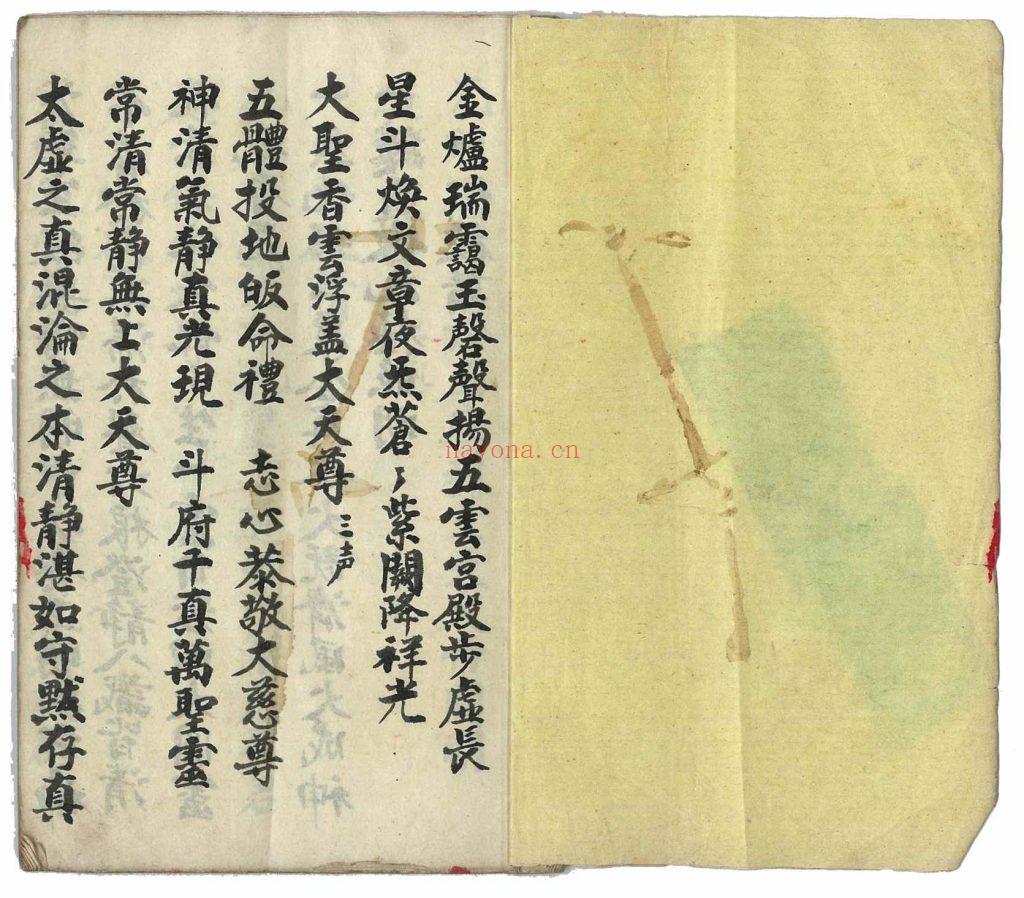 金爐瑞靄玉磬聲揚五雲宮殿步虛長
星斗煥文章夜炁蒼〻紫闕降祥光
大聖香雲浮盖大天尊 三声
五體投地皈命禮 志心恭敬大慈尊
神清氣靜真光現 斗府千真萬聖靈
常清常静無上大天尊
太虛之真混淪之本清靜湛如守黙存真
nayona.cn